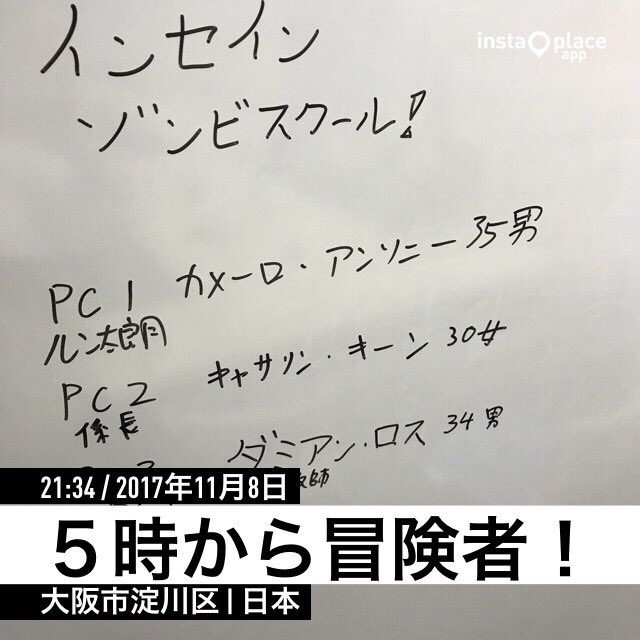 インセイン
ゾンビスクール!
insta place
app
PC1 カメーロ・アンソニー 35男
ルン太郎
PC2 キャサリン・キーン 30女
係長
ダミアン・ロス 34男
21:34 / 2017年11月8日
５時から冒険者！
大阪市淀川区 | 日本